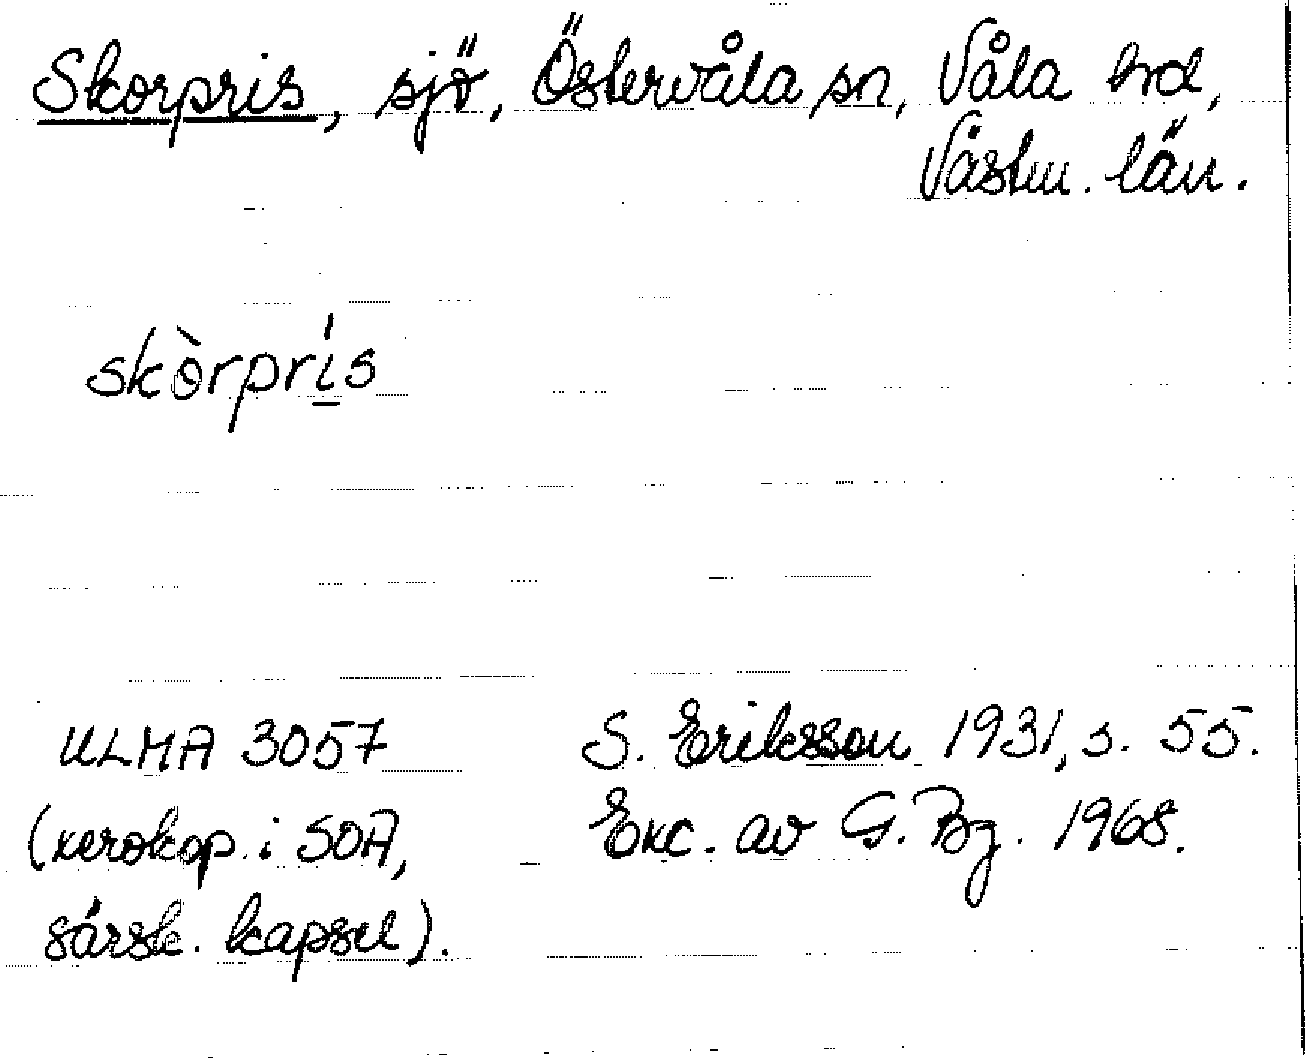 Skorpris, sjö, Östervåla sn, Våla hd,
Västm. län.
skòrprí̱s
ULMA 3057
S. Eriksson 1931, s. 55.
(xerokop. i SOA,
Exc. av G. Bg. 1968.
särsk. kapsel).